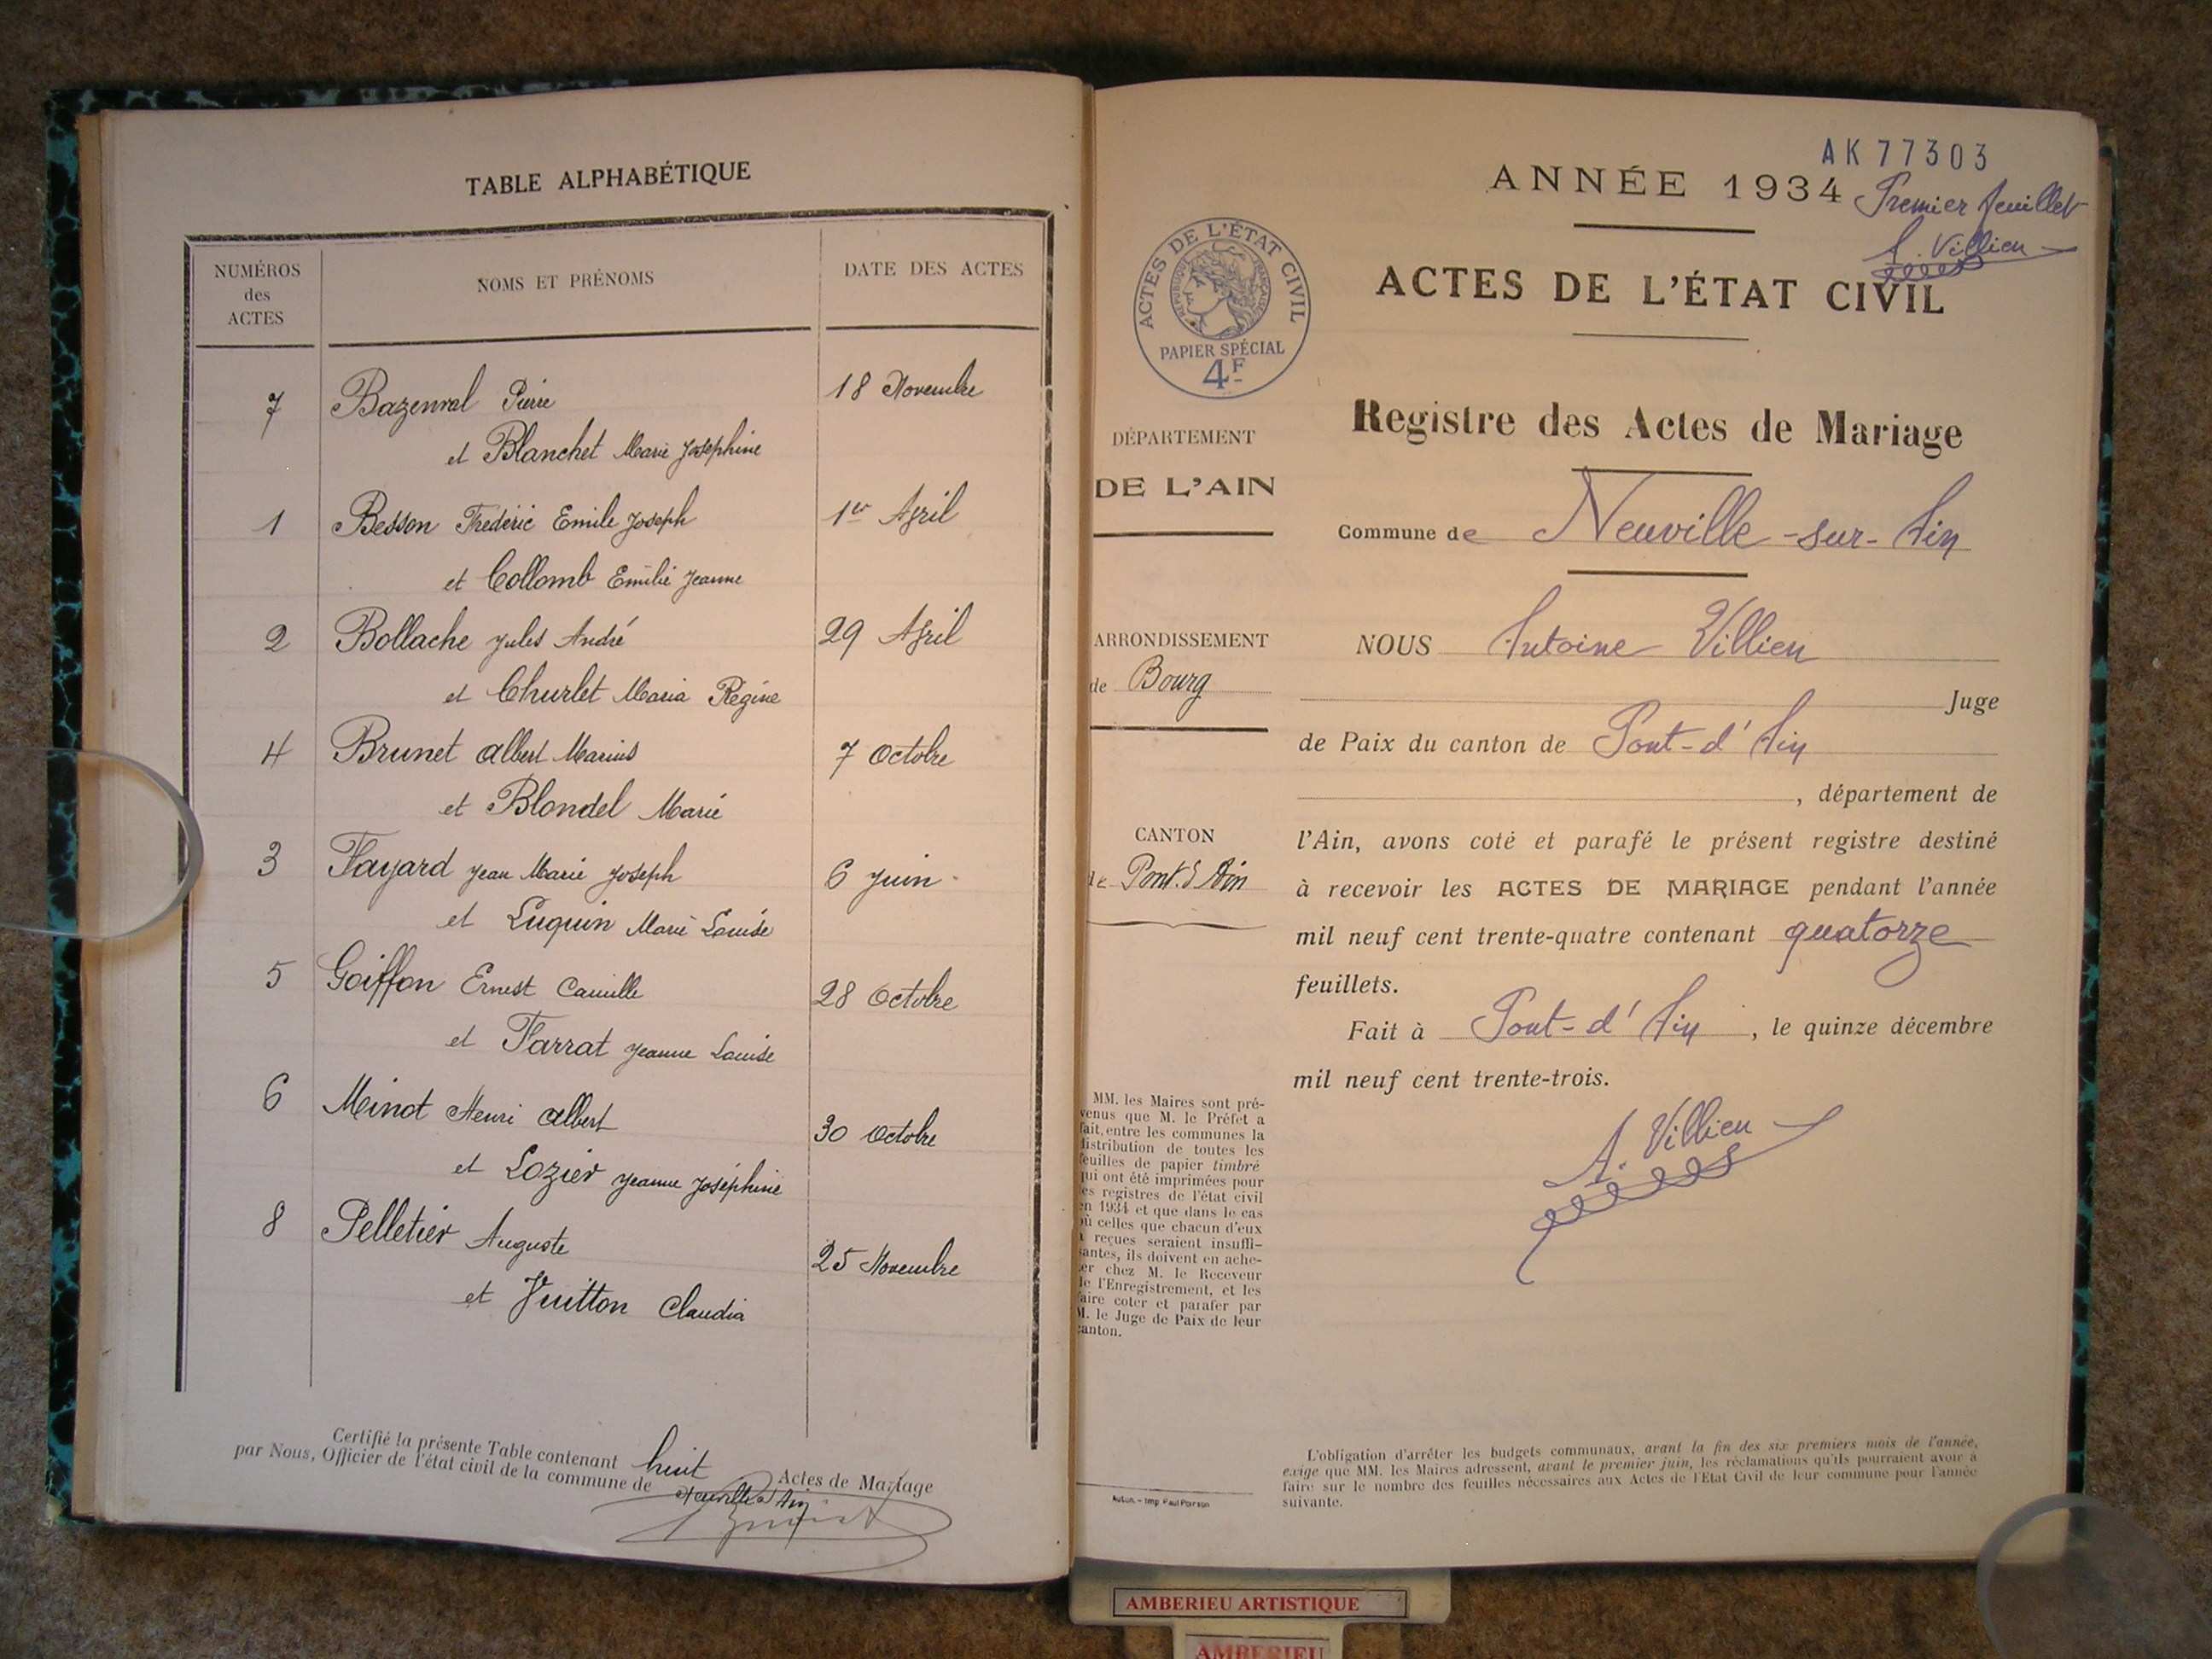 TABLE ALPHABÉTIQUE
NUMÉROS des ACTES
NOMS ET PRÉNOMS
DATE DES ACTES
7 Bazenval Pierre 18 Novembre
et Blanchet Marie Joséphine
1 Besson Frédéric Emile Joseph 1er Avril
et Collomb Emilie Jeanne
2 Bollache Jules André 29 Avril
et Churlet Maria Régine
4 Brunet Albert Marius 7 Octobre
et Blondel Marie
3 Fayard Jean Marie Joseph 6 Juin
et Luquin Marie Louise
5 Goiffon Ernest Camille 28 Octobre
et Farrat Jeanne Louise
6 Minot Henri Albert 30 Octobre
et Lozier Jeanne Joséphine
8 Pelletier Auguste 25 Novembre
et Vuitton Claudia
Certifié la présente Table contenant huit Actes de Mariage
par Nous, Officier de l'état civil de la commune de Neuville s/ Ain
AK 77303
ANNÉE 1934 Premier feuillet
A. Villien
ACTES DE L'ÉTAT CIVIL
RÉPUBLIQUE FRANÇAISE
PAPIER SPÉCIAL
4F
ACTES DE L'ÉTAT CIVIL
Registre des Actes de Mariage
DÉPARTEMENT
DE L'AIN
Commune de Neuville-sur-Ain
ARRONDISSEMENT
de Bourg
CANTON
de Pont d'Ain
NOUS Antoine Villien
Juge
de Paix du canton de Pont-d'Ain
, département de
l'Ain, avons coté et parafé le présent registre destiné
à recevoir les ACTES DE MARIAGE pendant l'année
mil neuf cent trente-quatre contenant quatorze
feuillets.
Fait à Pont-d'Ain, le quinze décembre
mil neuf cent trente-trois.
A. Villien
MM. les Maires sont pré-
venus que M. le Préfet a
fait, entre les communes la
distribution de toutes les
feuilles de papier timbré
qui ont été imprimées pour
les registres de l'état civil
en 1934 et que dans le cas
où celles que chacun d'eux
a reçues seraient insuffi-
santes, ils doivent en ache-
ter chez M. le Receveur
de l'Enregistrement, et les
faire coter et parafer par
M. le Juge de Paix de leur
canton.
Autun. - Imp. Paul Poirson
L'obligation d'arrêter les budgets communaux, avant la fin des six premiers mois de l'année,
exige que MM. les Maires adressent, avant le premier juin, les réclamations qu'ils pourraient avoir à
faire sur le nombre des feuilles nécessaires aux Actes de l'Etat Civil de leur commune pour l'année
suivante.
AMBERIEU ARTISTIQUE
AMBERIEU